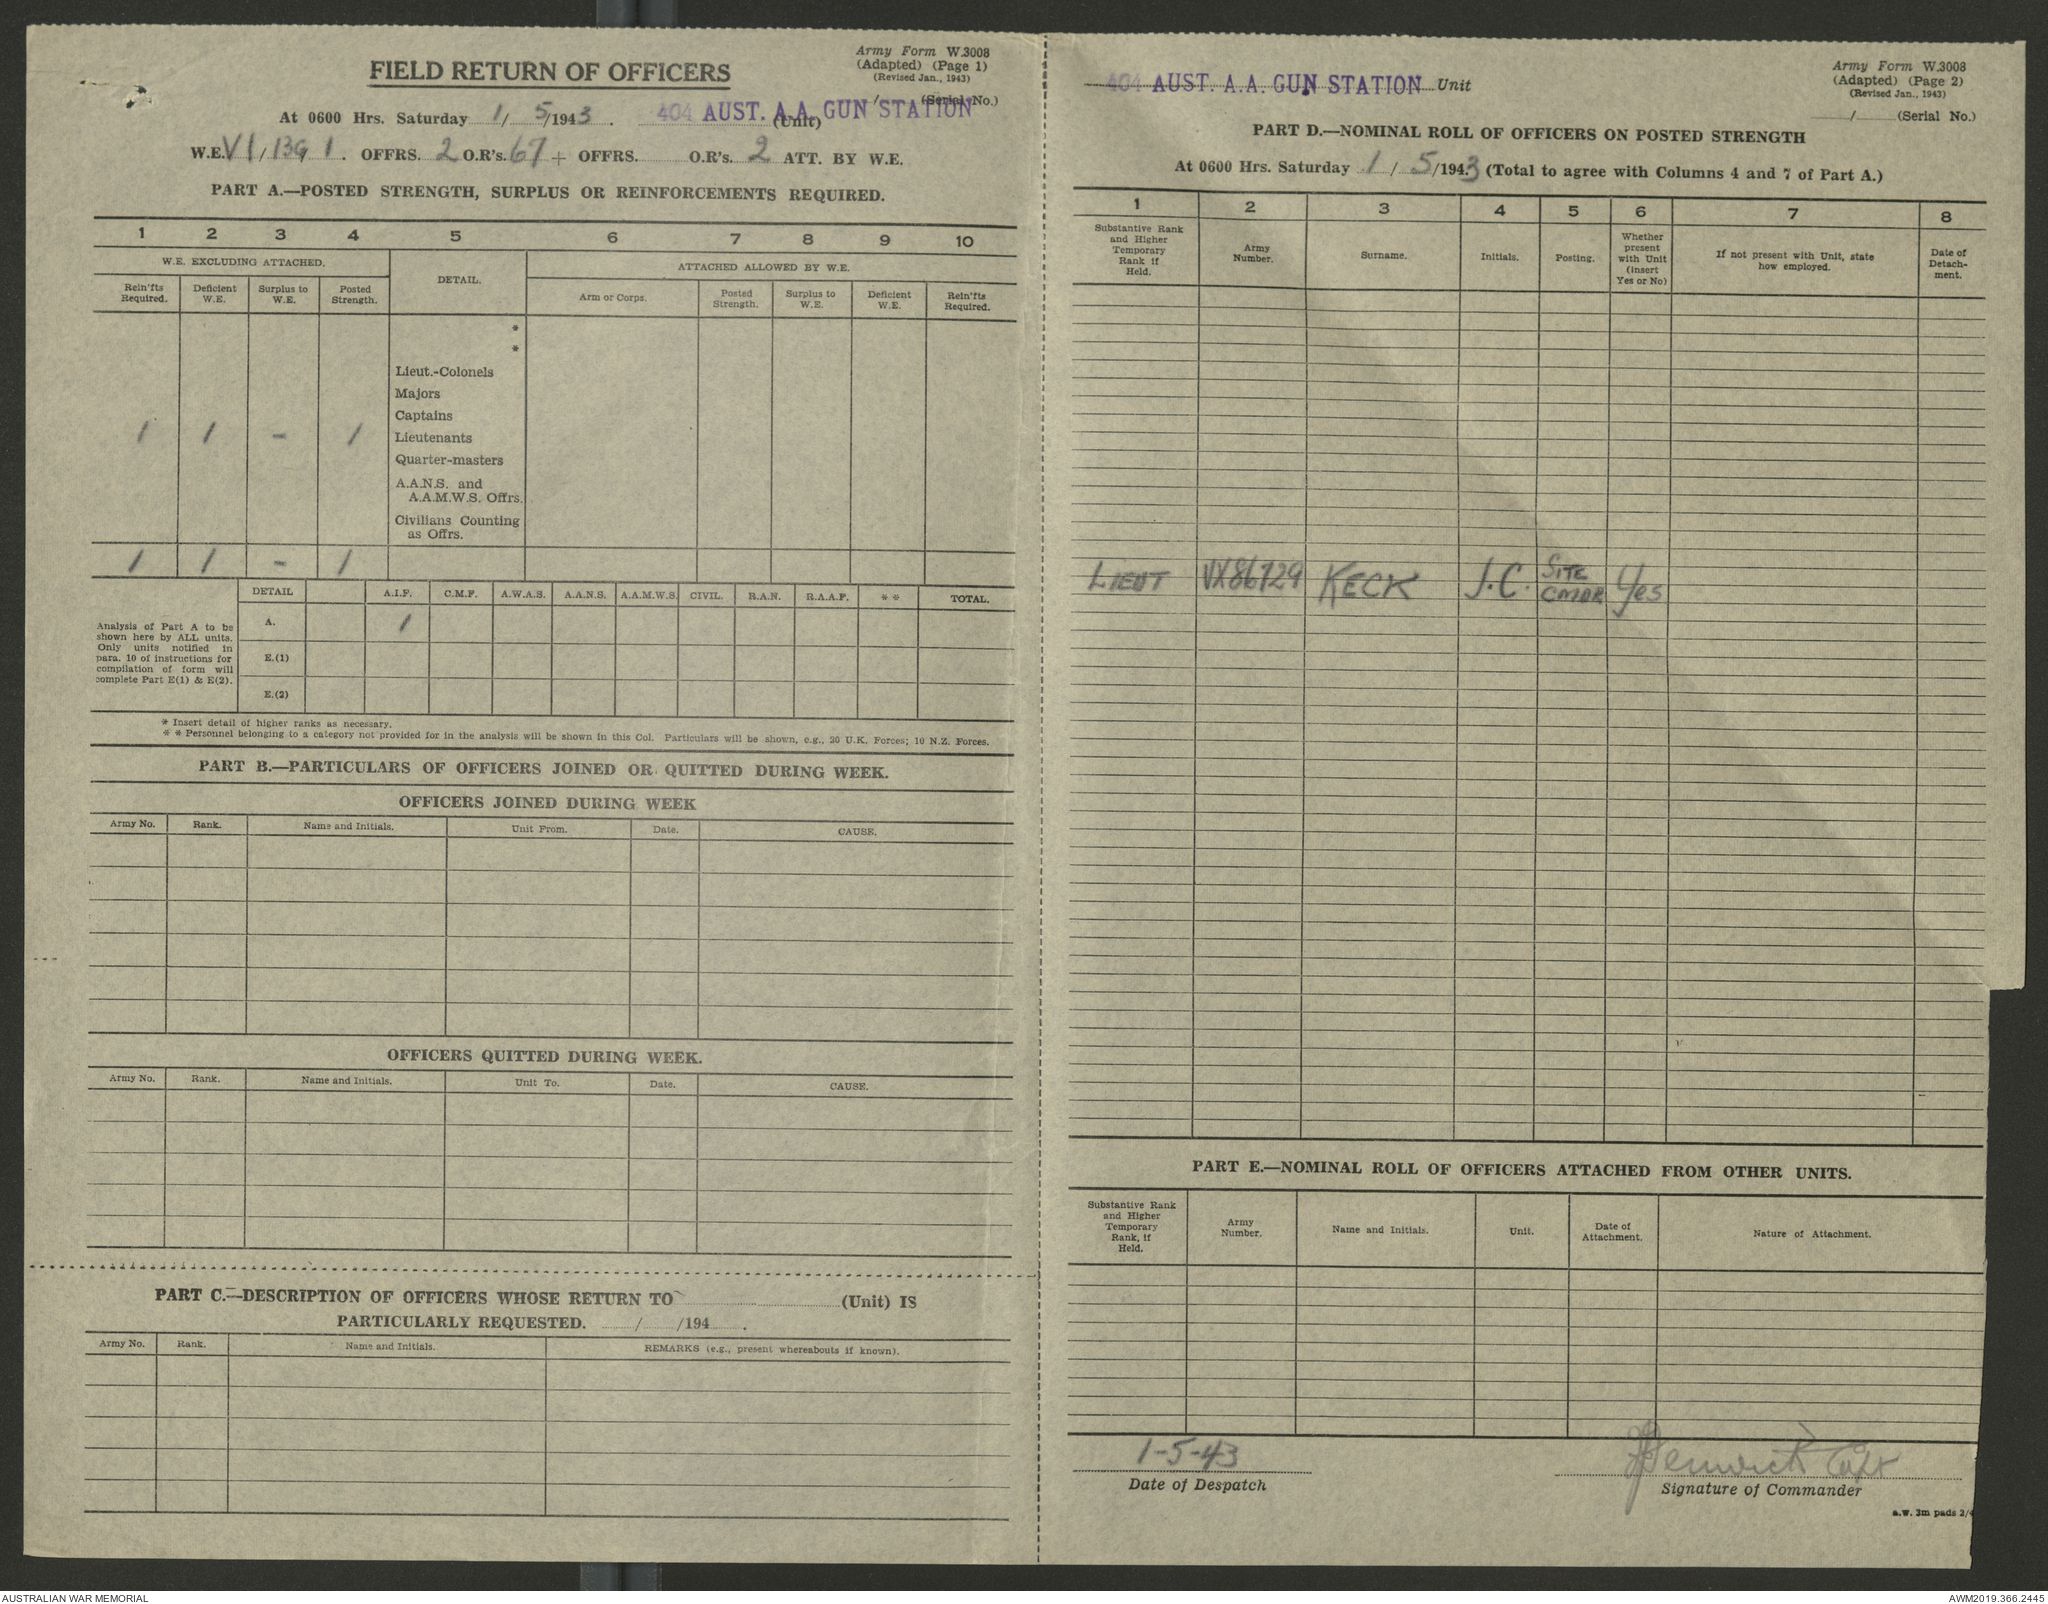 Army Form W.3008
(Adapted) (Page 1)
(Revised Jan., 1943)
FIELD RETURN OF OFFICERS
/ (Serial No.)
At 0600 Hrs. Saturday 1/5/1943. 404 AUST. A.A. GUN STATION (Unit)
W.E. VI/13G/1. OFFRS. 2 O.R's. 67 + OFFRS. O.R's. 2 ATT. BY W.E.
PART A.—POSTED STRENGTH, SURPLUS OR REINFORCEMENTS REQUIRED.
1 2 3 4 5 6 7 8 9 10
W.E. EXCLUDING ATTACHED. DETAIL. ATTACHED ALLOWED BY W.E.
Rein'fts Required. Deficient W.E. Surplus to W.E. Posted Strength. Arm or Corps. Posted Strength. Surplus to W.E. Deficient W.E. Rein'fts Required.
*
*
Lieut.-Colonels
Majors
Captains
1 1 - 1 Lieutenants
Quarter-masters
A.A.N.S. and
A.A.M.W.S. Offrs.
Civilians Counting
as Offrs.
1 1 - 1
DETAIL A.I.F. C.M.F. A.W.A.S. A.A.N.S. A.A.M.W.S. CIVIL. R.A.N. R.A.A.F. * * TOTAL.
Analysis of Part A to be
shown here by ALL units.
Only units notified in
para. 10 of instructions for
compilation of form will
complete Part E(1) & E(2).
A. 1
E.(1)
E.(2)
* Insert detail of higher ranks as necessary.
* * Personnel belonging to a category not provided for in the analysis will be shown in this Col. Particulars will be shown, e.g., 20 U.K. Forces; 10 N.Z. Forces.
PART B.—PARTICULARS OF OFFICERS JOINED OR QUITTED DURING WEEK.
OFFICERS JOINED DURING WEEK
Army No. Rank. Name and Initials. Unit From. Date. CAUSE.
OFFICERS QUITTED DURING WEEK.
Army No. Rank. Name and Initials. Unit To. Date. CAUSE.
PART C.—DESCRIPTION OF OFFICERS WHOSE RETURN TO (Unit) IS
PARTICULARLY REQUESTED. / /194 .
Army No. Rank. Name and Initials. REMARKS (e.g., present whereabouts if known).
Army Form W.3008
(Adapted) (Page 2)
(Revised Jan., 1943)
404 AUST. A.A. GUN STATION Unit
/ (Serial No.)
PART D.—NOMINAL ROLL OF OFFICERS ON POSTED STRENGTH
At 0600 Hrs. Saturday 1/5/1943 (Total to agree with Columns 4 and 7 of Part A.)
1 2 3 4 5 6 7 8
Substantive Rank and Higher Temporary Rank if Held. Army Number. Surname. Initials. Posting. Whether present with Unit (insert Yes or No) If not present with Unit, state how employed. Date of Detach-ment.
LIEUT VX86729 KECK J.C. SITE CMDR Yes
PART E.—NOMINAL ROLL OF OFFICERS ATTACHED FROM OTHER UNITS.
Substantive Rank and Higher Temporary Rank, if Held. Army Number. Name and Initials. Unit. Date of Attachment. Nature of Attachment.
1-5-43
Date of Despatch
Fenwick Capt
Signature of Commander
a.w. 3m pads 2/4
AUSTRALIAN WAR MEMORIAL
AWM2019.366.2445